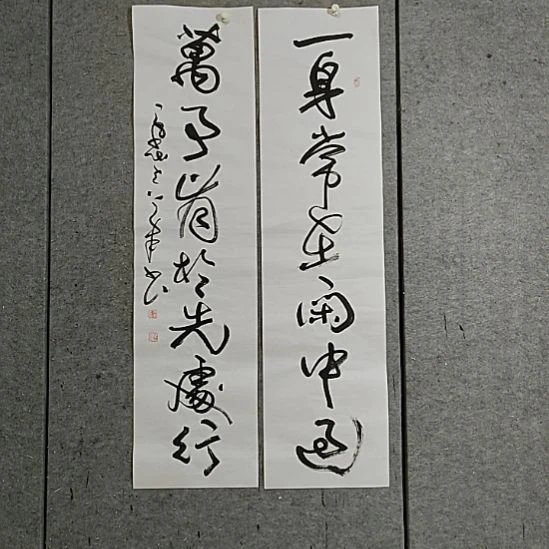 一身常在閑中過
萬事肯於先處行